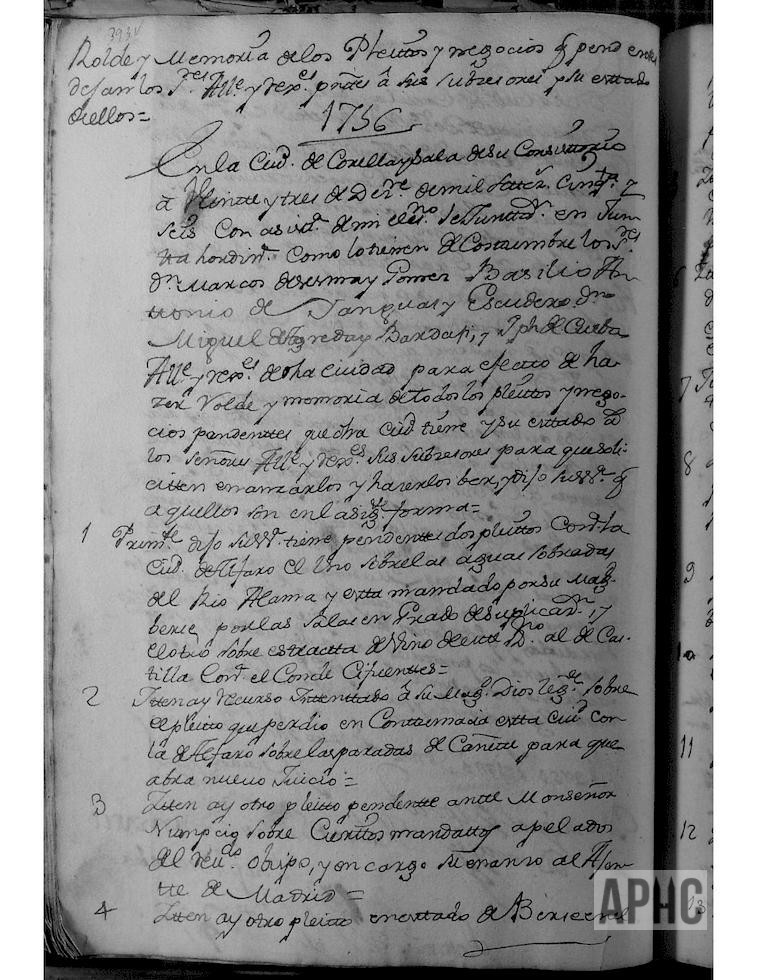 3934
Rolde y Memoria de los Pleittos y negocios q pendentes
dejan los S.res Alle. y rexs. pntes â sus subzesores y su esttado
de ellos=
1756
En la Ciud. de Corella y Sala de su Consisttorio
â Veintte y tres de Dizre. de mil settez. Cinqta. y
Seis Con asistª. de mi el esno. se Junttan. en Jun-
tta hordinª. como lo tienen de Costtumbre los S.res
Dn. Marcos de Sesma y Gomez Basilio An-
ttonio de Sanguas y Escudero, Dn
Miguel de Agreda y Bardaji, y Jph. de Cueba
Alle. y rexes. de dha ciudad para efecto de ha-
zer Rolde y memoria de todos los pleittos y nego-
cios pendenttes que dha Ciud tiene y su esttado â
los señores Alle. y rexes. sus subzesores para que soli-
citten enanzarlos y hazerlos ber, y dijo su SSª. q
aquellos son en la sigte. forma=
1 Primte. dijo su SSª. tiene pendenttes dos pleittos Con la
Ciud. de Alfaro el Uno sobre las aguas sobradas
del Rio Alama y estta mandado por su Magd.
berse por las Salas en Grado de Suplicazn., y
el otro sobre estractta de Vino de estte Rno. al de Cas-
tilla Con el Conde Cifuenttes=
2 Itten ay recurso Inttenttado â su Magd. Dios le gde. sobre
el pleitto que perdio en Conttumacia estta Ciud con
la de Alfaro sobre las paradas de Cañette para que
abra nuevo Juicio=
3 Itten ay otro pleitto pendentte antte Monseñor
Numpcio sobre Cierttos mandattos apelados
del Obispo, y en cargo al Ajen-
tte de Madrid=
4 Itten ay otro pleitto en esttado de
APHC
6
7
8
9
10
11
12
13